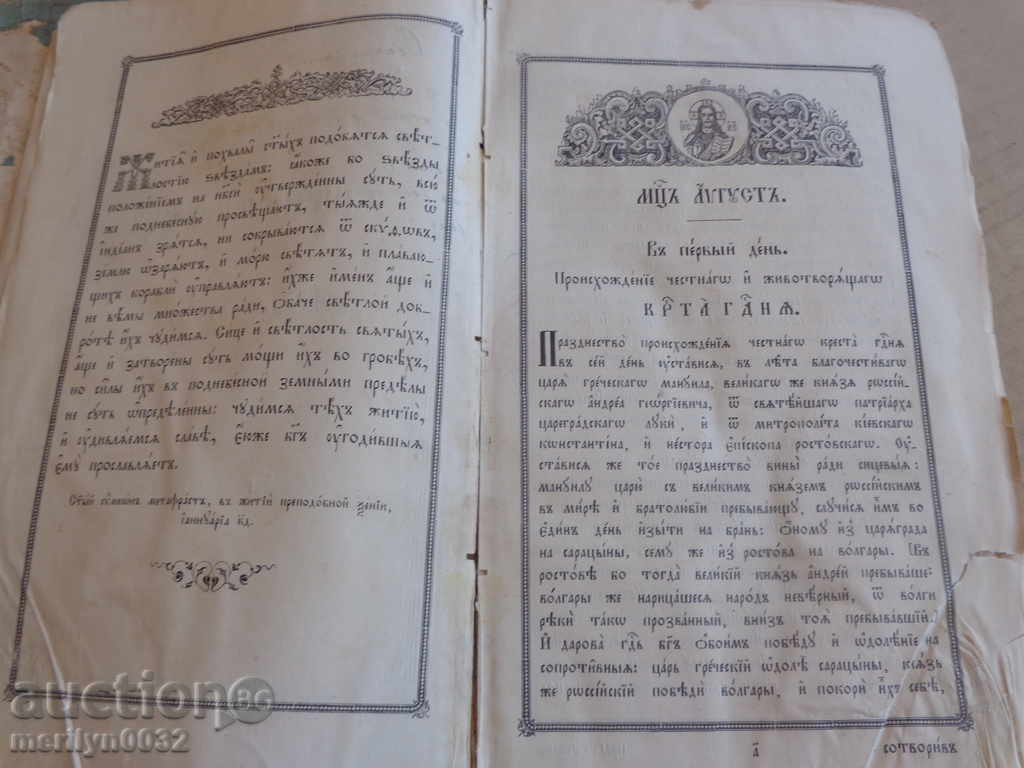 Житїѧ̀ и҆ похвалы̀ ст҃ы́хъ подо́бѧтсѧ свѣ́т-
лостїю ѕвѣзда́мъ: ꙗ҆́коже бо ѕвѣ́зды
положе́нїемъ на нб҃сѝ ᲂу҆твержде́нны сꙋ́ть, всю́
же поднебе́сную просвѣща́ютъ, ты́ѧжде и҆ ѿ
і҆ндїа́нъ зрѧ́тсѧ, ни сокрыва́ютсѧ ѿ скѵ́ѳѡвъ,
зе́млю ѡ҆зарѧ́ютъ, и҆ мо́рю свѣ́тѧтъ, и҆ пла́ваю-
щихъ корабли̑ ᲂу҆правлѧ́ютъ: и҆́хже и҆ме́нъ а҆́ще и҆
не вѣ́мы мно́жества ра́ди, ѻ҆ба́че свѣ́тлой доб-
ро́тѣ и҆́хъ чꙋди́мсѧ. Си́це и҆ свѣ́тлость свѧты́хъ,
а҆́ще и҆ затворе́ны сꙋ́ть мо́щи и҆́хъ во гробѣ́хъ,
но си̑лы и҆́хъ въ поднебе́сной земны́ми предѣ́лы
не сꙋ́ть ѡ҆предѣле́нны: чꙋди́мсѧ тѣ́хъ житїю̀,
и҆ ᲂу҆дивлѧ́емсѧ сла́вѣ, є҆́юже бг҃ъ ᲂу҆годи́вшыѧ
є҆мꙋ̀ прославлѧ́етъ.
Ст҃ы́й сѷмеѡ́нъ метафра́стъ, въ житїѝ преподо́бной ѯе́нїи,
і҆аннꙋа́рїа к҃д.
Мц҃ъ а҆́ѵгꙋстъ.
Въ пе́рвый де́нь.
Происхожде́нїе честна́гѡ и҆ животворѧ́щагѡ
КРⷭ҇ТА̀ ГДⷭ҇НѦ.
Пра́зднество происхожде́нїѧ честна́гѡ креста̀ гдⷭ҇нѧ
въ се́й де́нь ᲂу҆ста́висѧ, въ лѣ̑та благочести́вагѡ
царѧ̀ гре́ческагѡ манꙋи́ла, вели́кагѡ же кнѧ́зѧ рѡссі́й-
скагѡ а҆ндре́а геѡ́ргїевича, ѿ свѧтѣ́йшагѡ патрїа́рха
царегра́дскагѡ лꙋкѝ, и҆ ѿ митрополі́та кі́евскагѡ
кѡнстанті́на, и҆ не́стора є҆пі́скопа росто́вскагѡ. Оу҆-
ста́висѧ же то́е пра́зднество вины̀ ра́ди сицевы́ѧ:
манꙋи́лꙋ царю̀ съ вели́кимъ кнѧ́земъ рѡссі́йскимъ
въ ми́рѣ и҆ братолю́бїи пребыва́ющꙋ, слꙋчи́сѧ и҆̀мъ во
є҆ди́нъ де́нь и҆зы́ти на бра́нь: ѻ҆́номꙋ и҆з̾ царѧгра́да
на сарацы́ны, семꙋ́ же и҆з̾ росто́ва на во́лгары. [Въ
росто́вѣ бо тогда̀ вели́кїй кнѧ́зь а҆ндре́й пребыва́ше:
во́лгары же нарица́шесѧ наро́дъ невѣ́рный, ѿ во́лги
рѣкѝ та́кѡ прозва́нный, вни́зъ тоѧ̀ пребыва́вшїй.]
И҆ дарова̀ гдⷭ҇ь бг҃ъ ѻ҆бои̑мъ побѣ́дꙋ и҆ ѡ҆долѣ́нїе на
сопроти̑вныѧ: ца́рь гре́ческїй ѡ҆долѣ̀ сарацы́ны, кнѧ́зь
же рѡссі́йскїй побѣдѝ во́лгары, и҆ покорѝ и҆̀хъ себѣ̀,
а҃
сотвори́въ
auction86
merilyn0032